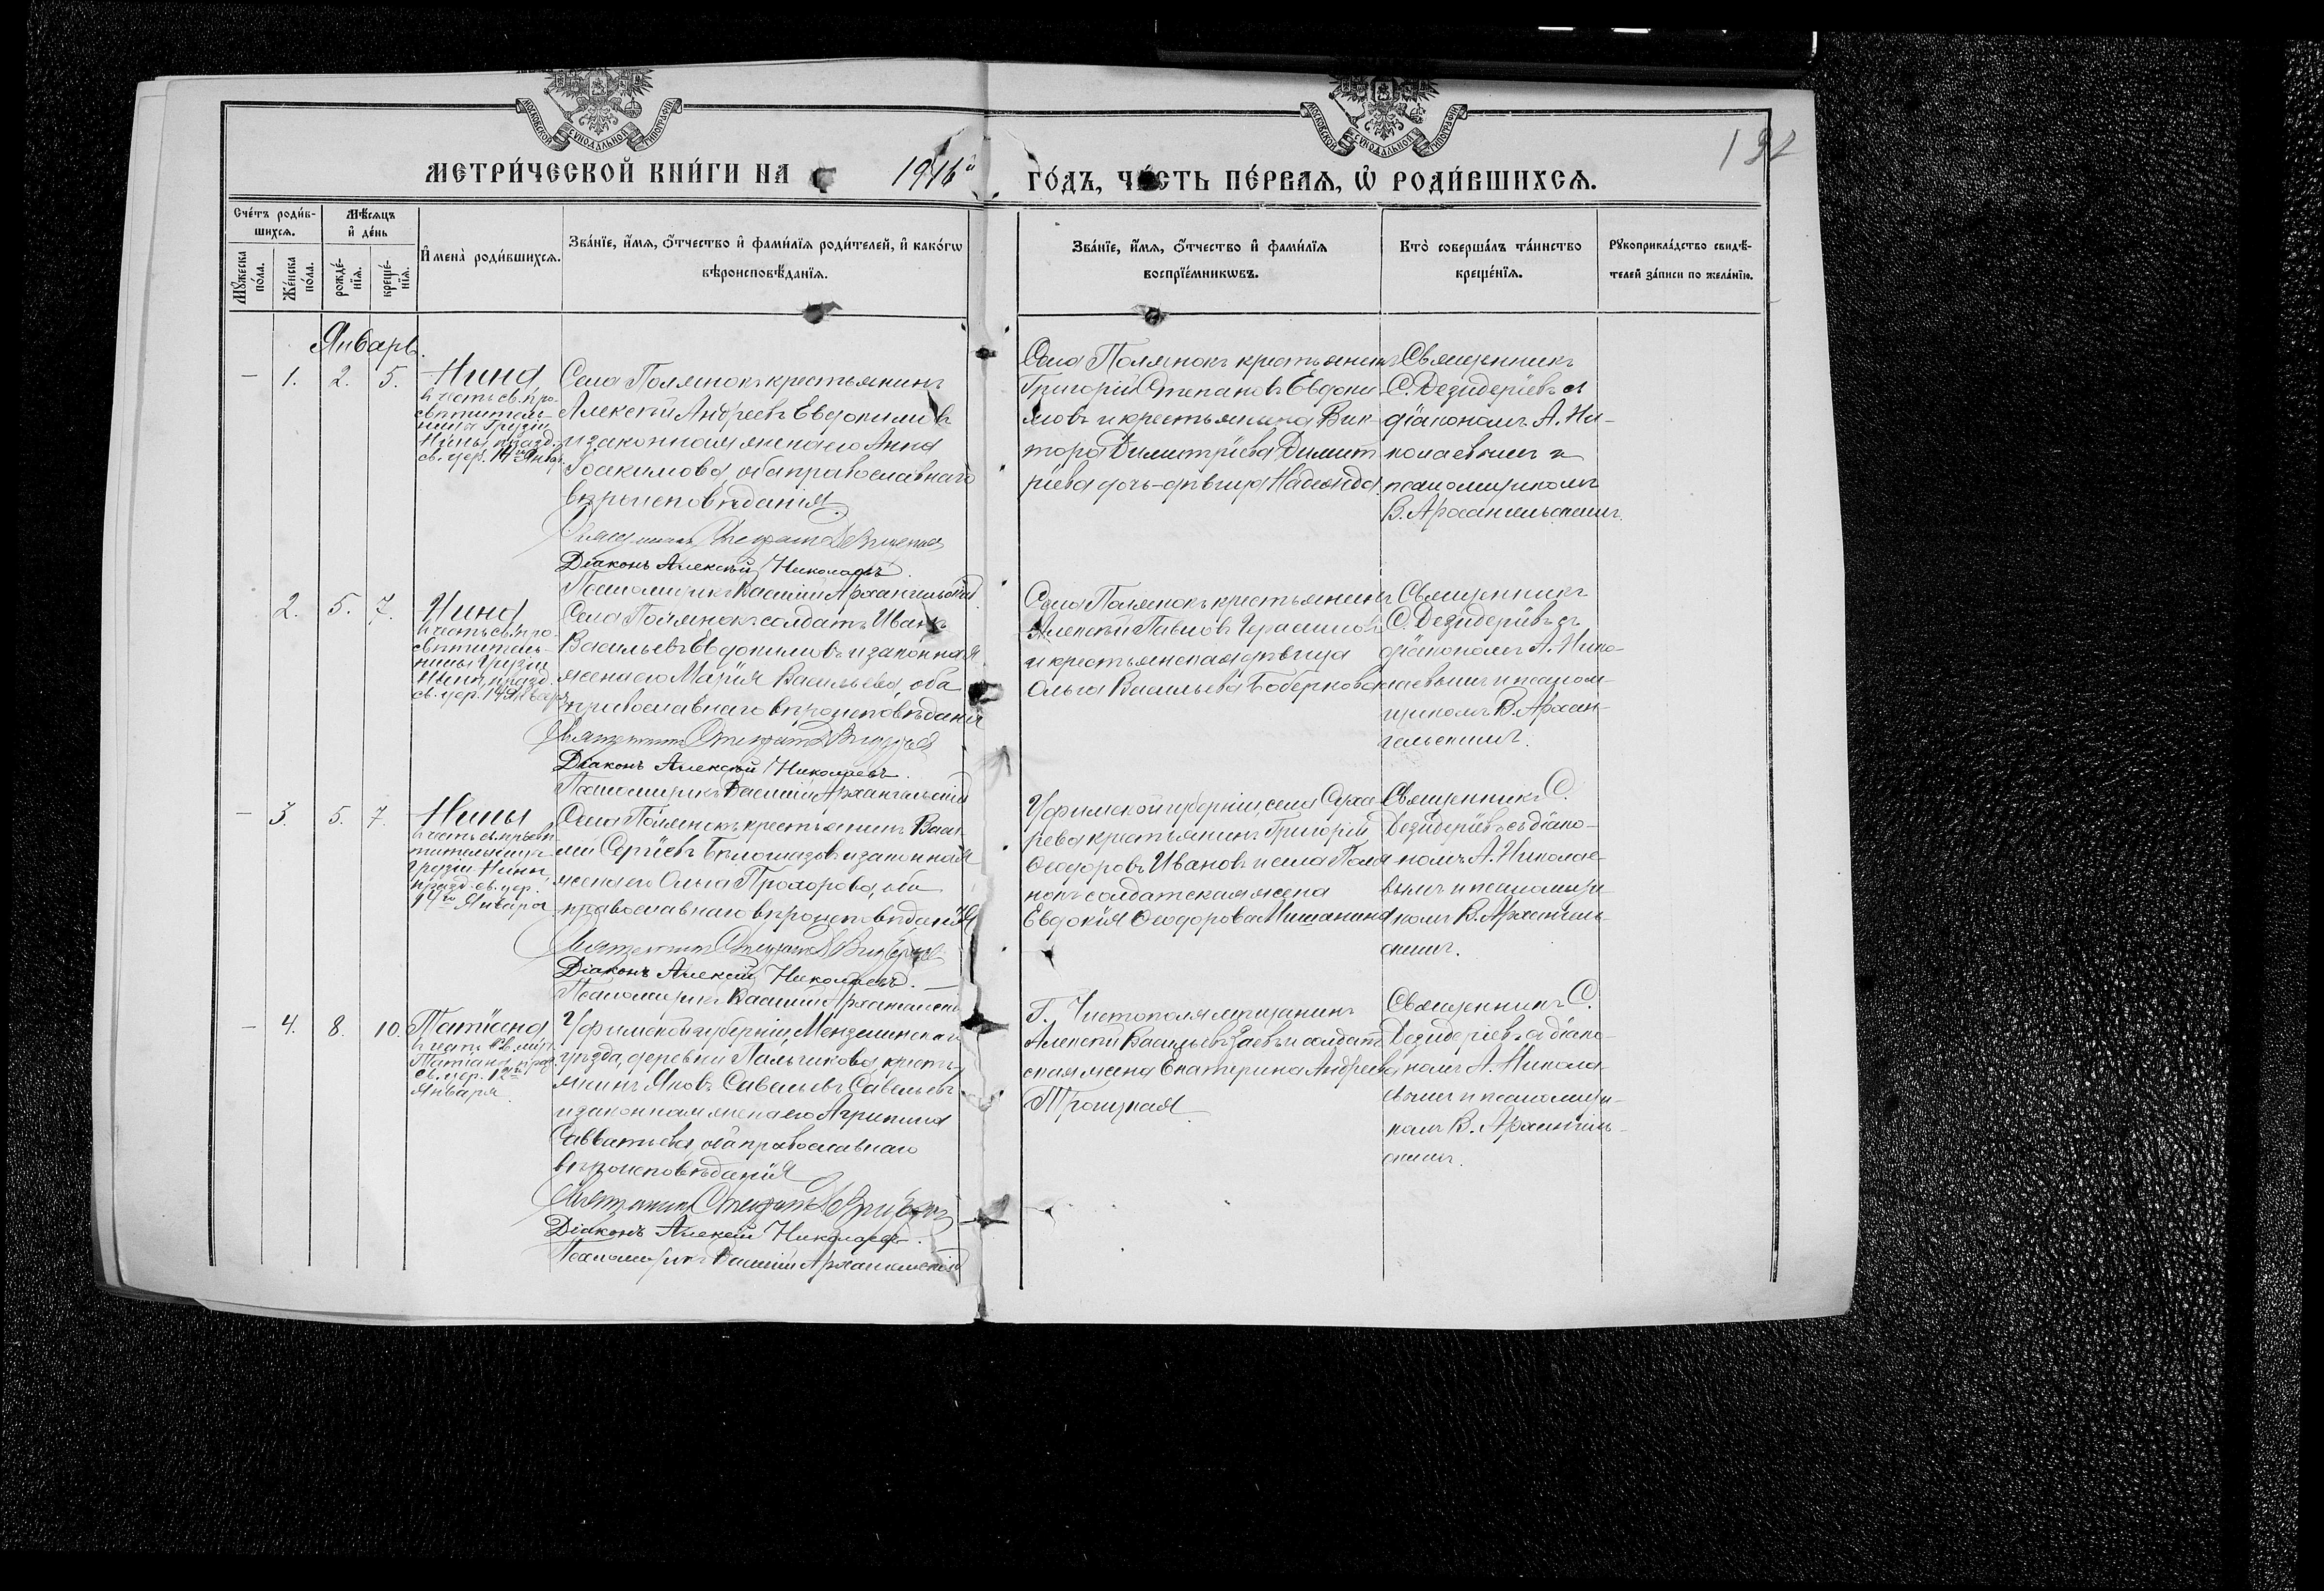 МОСКОВСКОЙ СѴНОДАЛЬНОЙ ТИПОГРАФІИ
МОСКОВСКОЙ СѴНОДАЛЬНОЙ ТИПОГРАФІИ
МЕТРИ́ЧЕСКОЙ КНИ́ГИ НА 1916й ГО́ДЪ, ЧА́СТЬ ПЕ́РВАѦ, Ѽ РОДИ́ВШИХСѦ.
Сче́тъ роди́в-
шихсѧ.
Мѣ́сѧцъ
и҆ де́нь
Мꙋ́жеска
по́ла.
Же́нска
по́ла.
рожде́-
нїѧ.
креще́-
нїѧ.
И҆мена̀ роди́вшихсѧ.
Зва́нїе, и҆́мѧ, ѻ҆́тчество и҆ фами́лїѧ роди́телей, и҆ како́гѡ
вѣроисповѣ́данїѧ.
Зва́нїе, и҆́мѧ, ѻ҆́тчество и҆ фами́лїѧ
воспрїе́мникѡвъ.
Кто̀ соверша́лъ та́инство
креще́нїѧ.
Рꙋкоприкла́дство свидѣ́-
телей за́писи по жела́нїю.
Январь.
— 1. 2. 5.
Нина,
въ честь св. про-
свѣтитель-
ницы Грузіи
Нины, празд.
св. цер. 14го Январ.
Села Полянокъ крестьянинъ
Алексѣй Андреевъ Евдокимовъ
и законная жена его Анна
Іоакимова, оба православнаго
вѣроисповѣданія.
Священникъ
Діаконъ Алексѣй Николаевъ.
Псаломщикъ Василій Архангельскій
Села Полянокъ крестьянинъ
Григорій Степановъ Евдоки-
мовъ и крестьянина Вик-
тора Димитріева Димит-
ріева дочь-дѣвица Надежда.
Священникъ
С. Дезидеріевъ съ
діакономъ А. Ни-
колаевымъ и
псаломщикомъ
В. Архангельскимъ.
2. 5. 7.
Нина,
въ честь св. про-
свѣтитель-
ницы Грузіи
Нины, празд.
св. цер. 14 Января
Села Полянокъ солдатъ Иванъ
Васильевъ Евдокимовъ и законная
жена его Марія Васильева, оба
православнаго вѣроисповѣданія
Священникъ
Діаконъ Алексѣй Николаевъ.
Псаломщикъ Василій Архангельскій
Села Полянокъ крестьянинъ
Алексѣй Павловъ Герасимовъ
и крестьянская дѣвица
Ольга Васильева
Священникъ
С. Дезидеріевъ съ
діакономъ А. Нико-
лаевымъ и псалом-
щикомъ В. Архан-
гельскимъ.
— 3. 5. 7.
Нины
въ честь св. просвѣ-
тительницы
Грузіи Нины,
празд. св. цер.
14го Января
Села Полянокъ крестьянинъ Васи-
лій Сергіевъ и законная
жена его Ольга Прохорова, оба
православнаго вѣроисповѣданія
Священникъ
Діаконъ Алексѣй Николаевъ.
Псаломщикъ Василій Архангельскій
Уфимской губерніи, села Суха-
рева крестьянинъ Григорій
Ѳеодоровъ Ивановъ и села Поля-
нокъ солдатская жена
Евдокія Ѳеодорова Мишанина
Священникъ С.
Дезидеріевъ съ діако-
номъ А. Николае-
вымъ и псаломщи-
комъ В. Архангель-
скимъ.
— 4. 8. 10.
Татіана,
въ честь св. муч.
Татіаны, празд.
св. цер. 12го
Января.
Уфимской губерніи, Мензелинскаго
уѣзда, деревни Пальчикова, кресть-
янинъ Яковъ Савельевъ Савельевъ
и законная жена его Агрипина
Савватиева, оба православнаго
вѣроисповѣданія
Священникъ
Діаконъ Алексѣй Николаевъ.
Псаломщикъ Василій Архангельскій
Г. Чистополя мѣщанинъ
Алексѣй Васильевъ и солдат-
ская жена Екатерина Андреева
Троицкая
Священникъ С.
Дезидеріевъ съ діако-
номъ А. Никола-
евымъ и псаломщи-
комъ В. Архангель-
скимъ.